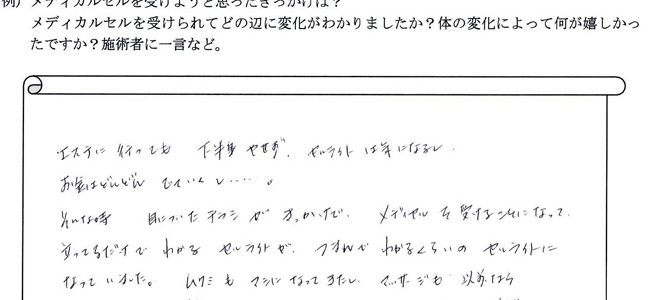 例）メディカルセルを受けようと思ったきっかけは？
メディカルセルを受けられてどの辺に変化がわかりましたか？体の変化によって何が嬉しかっ
たですか？施術者に一言など。
エステに行っても 下半身やせず、セルライトは気になるし、
お金はどんどん でていくし……。
そんな時 目についたチラシが きっかけで、 メディセル を受けることになって、
立ってるだけで わかる セルライトが、 つまんで わかるくらいの セルライトに
なっていました。 ムクミも マシになってきたし、マッサージも 以前なら